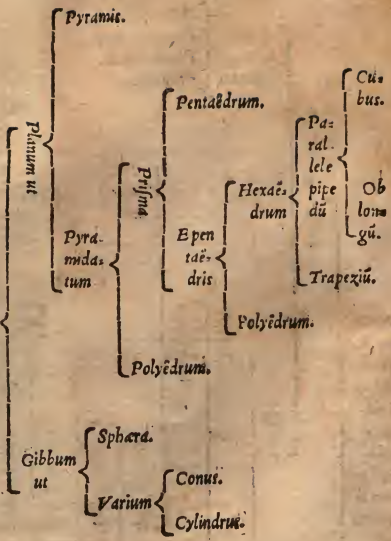 Planum ut
Pyramis.
Pyra-
mida-
tum
Prisma
Pentaëdrum.
Epen
taë-
dris
Hexaë-
drum
Pa-
ral
lele
pipe
dũ
Cu-
bus.
Ob
lon-
gũ.
Trapeziũ.
Polyêdrum.
Polyêdrum.
Gibbum
ut
Sphæra.
Varium
Conus.
Cylindrus.